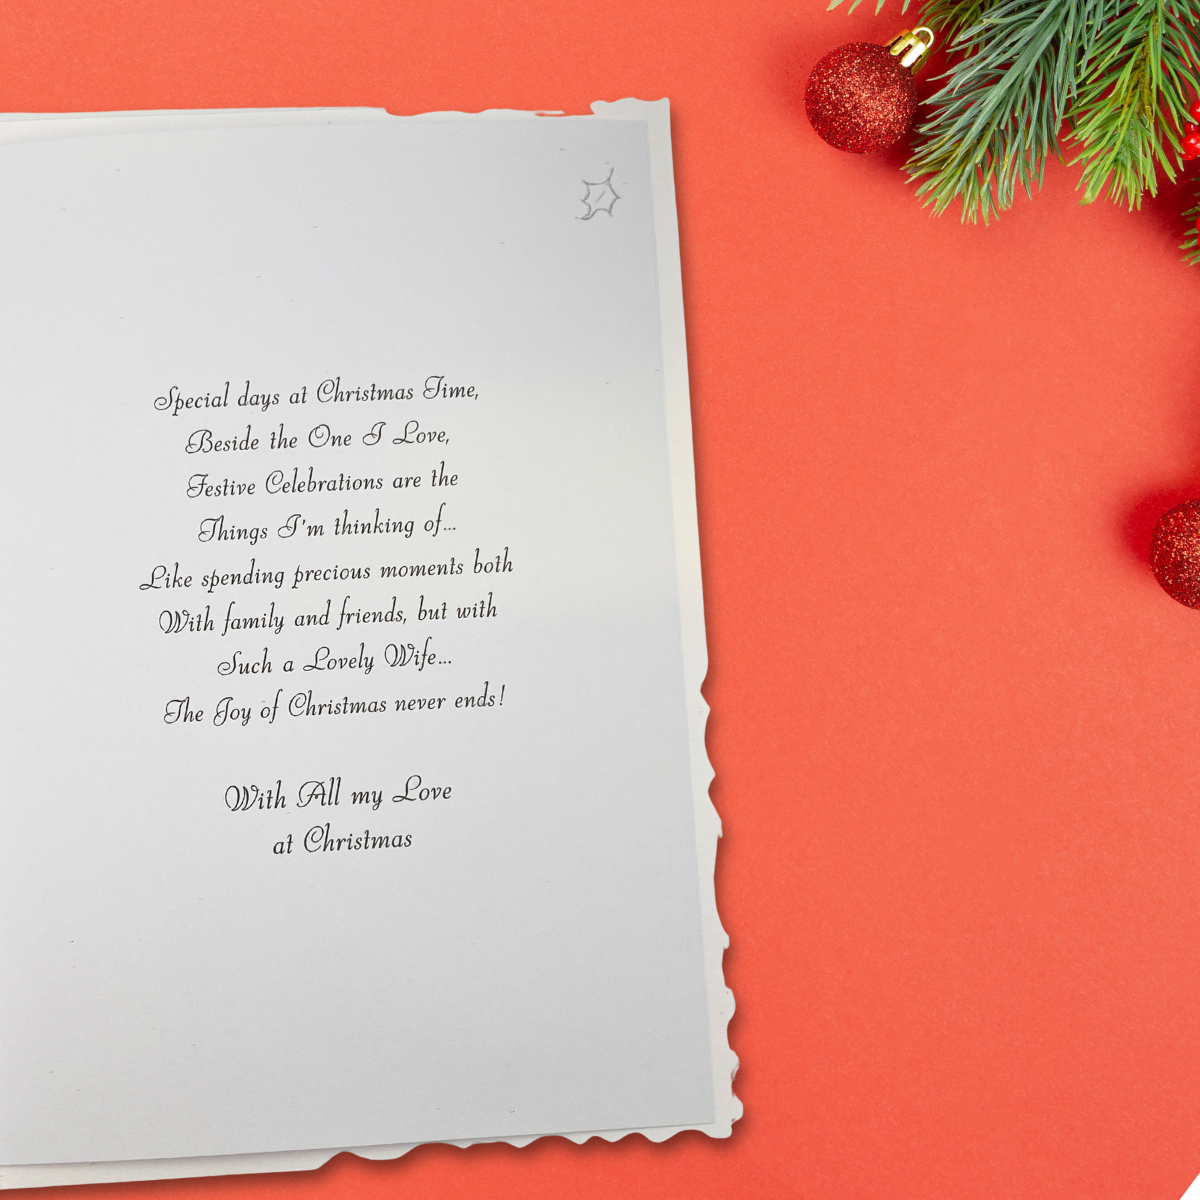 Special days at Christmas Time,
Beside the One I Love,
Festive Celebrations are the
Things I'm thinking of...
Like spending precious moments both
With family and friends, but with
Such a Lovely Wife...
The Joy of Christmas never ends!
With All my Love
at Christmas